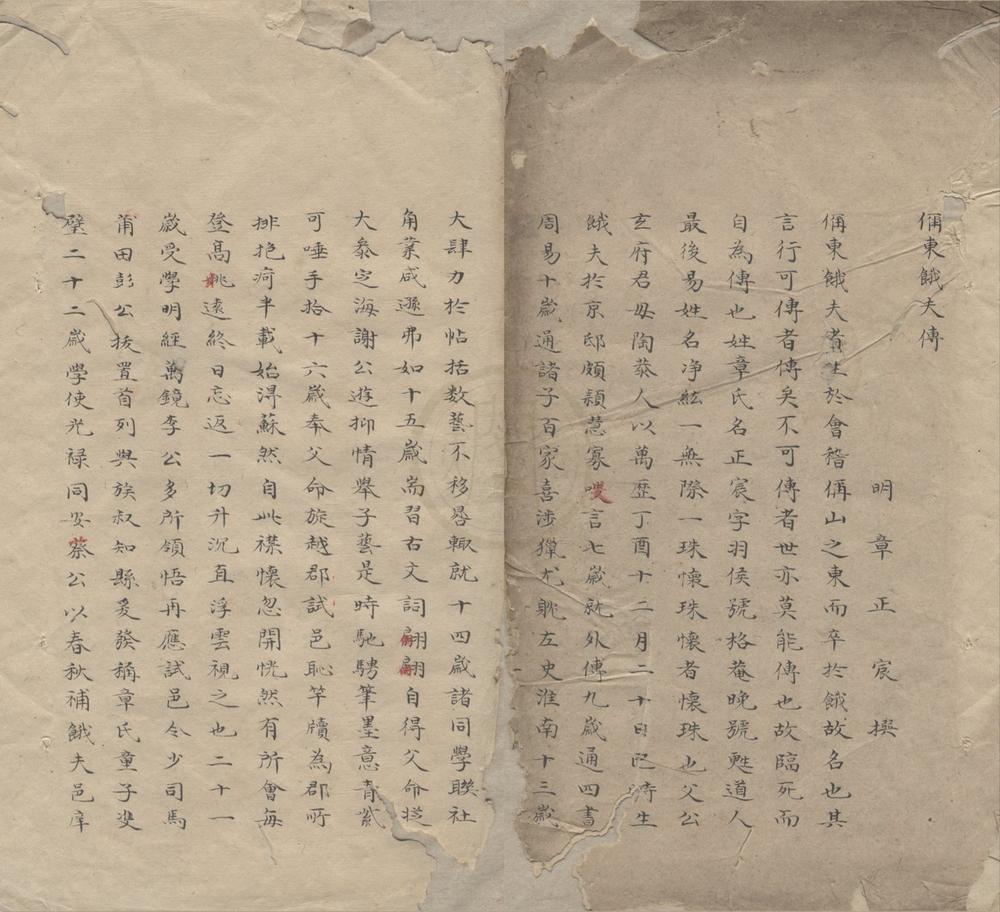 偁東餓夫傳
明章正宸撰
偁東餓夫者生於會稽偁山之東而卒於餓故名也其
言行可傳者傳矣不可傳者世亦莫能傳也故臨死而
自為傳也姓章氏名正宸字羽侯號格菴晚號甦道人
最後易姓名净紭一無際一珠懷珠懷者懷珠也父公
玄府君毋陶㳟人以萬歴丁酉十二月二十日巳時生
餓夫於京邸頗穎慧寡嗖言七嵗就外傅九嵗通四書
周易十嵗通諸子百家喜涉獵尤躭左史淮南十三嵗
大肆力於帖括数藝不移晷輙就十四嵗諸同學聨社
角業咸遜弗如十五嵗耑習古文詞翩翩自得父命從
大叅㝎海謝公遊抑情舉子藝是時馳騁筆墨意青紫
可唾手拾十六嵗奉父命旋越郡試邑恥竿牘為郡所
排抱疴半載始淂蘇然自此襟懷忽開恍然有所會每
登高眺遠終日忘返一切升沉直浮雲視之也二十一
嵗受學明經萬鏡李公多所領悟再應試邑令少司馬
莆田彭公拔置首列與族叔知縣爰發稱章氏童子雙
璧二十二嵗學使光禄同安蔡公以春秋補餓夫邑庠